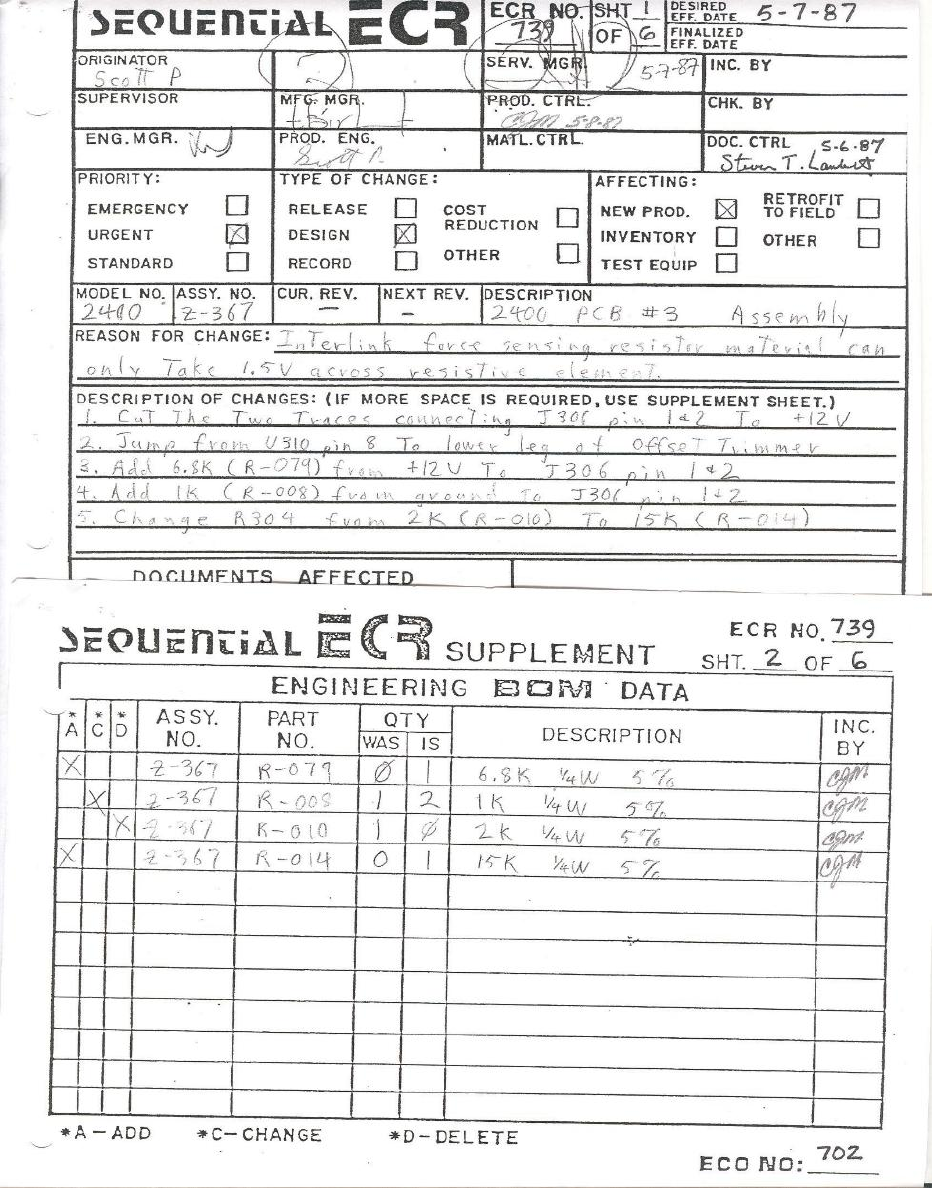 SEQUENTIAL ECR ECR NO. 739 SHT 1 OF 6 DESIRED EFF. DATE 5-7-87
FINALIZED EFF. DATE
ORIGINATOR Scott P SERV. MGR. 5-7-87 INC. BY
SUPERVISOR MFG. MGR. PROD. CTRL. CJM 5-8-87 CHK. BY
ENG. MGR. PROD. ENG. Scott P. MATL. CTRL. DOC. CTRL 5-6-87
Steven T. Lambert
PRIORITY: TYPE OF CHANGE: AFFECTING:
EMERGENCY RELEASE COST REDUCTION NEW PROD. X RETROFIT TO FIELD
URGENT X DESIGN X INVENTORY OTHER
STANDARD RECORD OTHER TEST EQUIP
MODEL NO. ASSY. NO. CUR. REV. NEXT REV. DESCRIPTION
2400 Z-367 — – 2400 PCB #3 Assembly
REASON FOR CHANGE: Interlink force sensing resistor material can
only Take 1.5V across resistive element.
DESCRIPTION OF CHANGES: (IF MORE SPACE IS REQUIRED, USE SUPPLEMENT SHEET.)
1. Cut The Two Traces connecting J306 pin 1&2 To +12V
2. Jump from U310 pin 8 To lower leg of Offset Trimmer
3. Add 6.8K (R-079) from +12V To J306 pin 1&2
4. Add 1K (R-008) from ground To J306 pin 1&2
5. Change R304 from 2K (R-010) To 15K (R-014)
DOCUMENTS AFFECTED
SEQUENTIAL ECR SUPPLEMENT ECR NO. 739
SHT. 2 OF 6
ENGINEERING BOM DATA
*A *C *D ASSY. NO. PART NO. QTY WAS IS DESCRIPTION INC. BY
X Z-367 R-079 0 1 6.8K 1/4W 5% CJM
X Z-367 R-008 1 2 1K 1/4W 5% CJM
X Z-367 R-010 1 0 2K 1/4W 5% CJM
X Z-367 R-014 0 1 15K 1/4W 5% CJM
*A-ADD *C-CHANGE *D-DELETE
ECO NO: 702